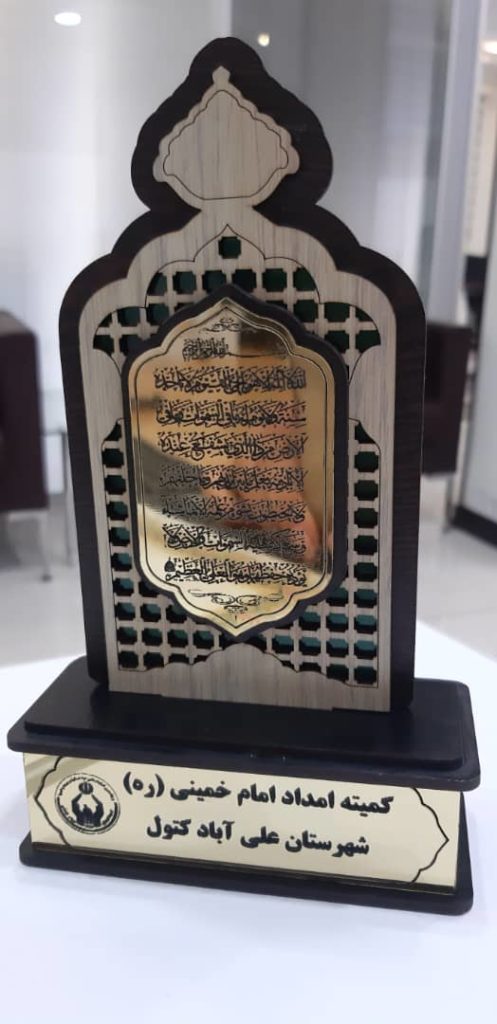 بسم الله الرحمن الرحیم
الله لا اله الا هو الحی القیوم لا تاخذه
سنة و لا نوم له ما فی السموات و ما فی
الارض من ذا الذی یشفع عنده
الا باذنه یعلم ما بین ایدیهم و ما خلفهم
و لا یحیطون بشیء من علمه الا بما شاء
وسع کرسیه السموات و الارض و لا
یؤده حفظهما و هو العلی العظیم
کمیته امداد امام خمینی (ره)
شهرستان علی آباد کتول